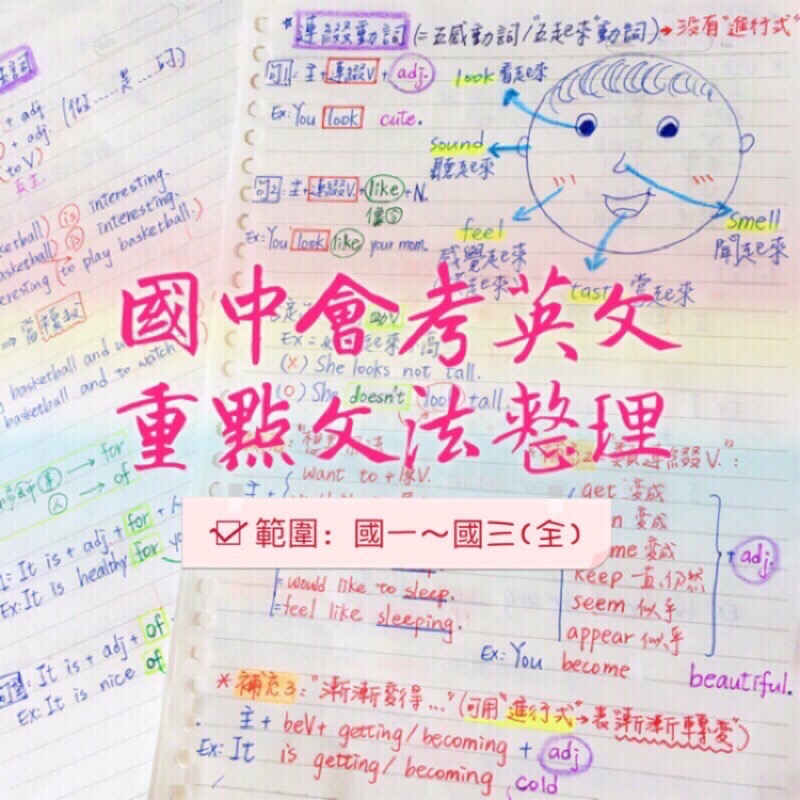 *連綴動詞(=五感動詞/"五起來"動詞)→沒有"進行式"
句1=主+連綴V.+adj.
Ex: You look cute.
look 看起來
sound
聽起來
句2=主+連綴V.+like+N.
像
Ex: You look like your mom.
feel
感覺起來
smell
聞起來
嘗起來
國中會考英文
重點文法整理
範圍: 國一~國三(全)
(X) She looks not tall.
(O) She doesn't look tall.
want to+原V.
=would like to sleep.
=feel like sleeping.
get 變成
變成
變成
keep 一直,仍然
seem 似乎
appear 似乎
+adj.
Ex: You become beautiful.
*補充3:"漸漸變得…"(可用"進行式"→表漸漸轉變)
主+beV+getting/becoming+adj
Ex: It is getting/becoming cold
+ adj (做……是……的)
+ adj
(to V)
真主
is interesting.
is interesting.
(to play basketball.)
basketball and to watch
→ for
→ of
It is + adj. + for +
Ex: It is healthy for
It is + adj + of
Ex: It is nice of